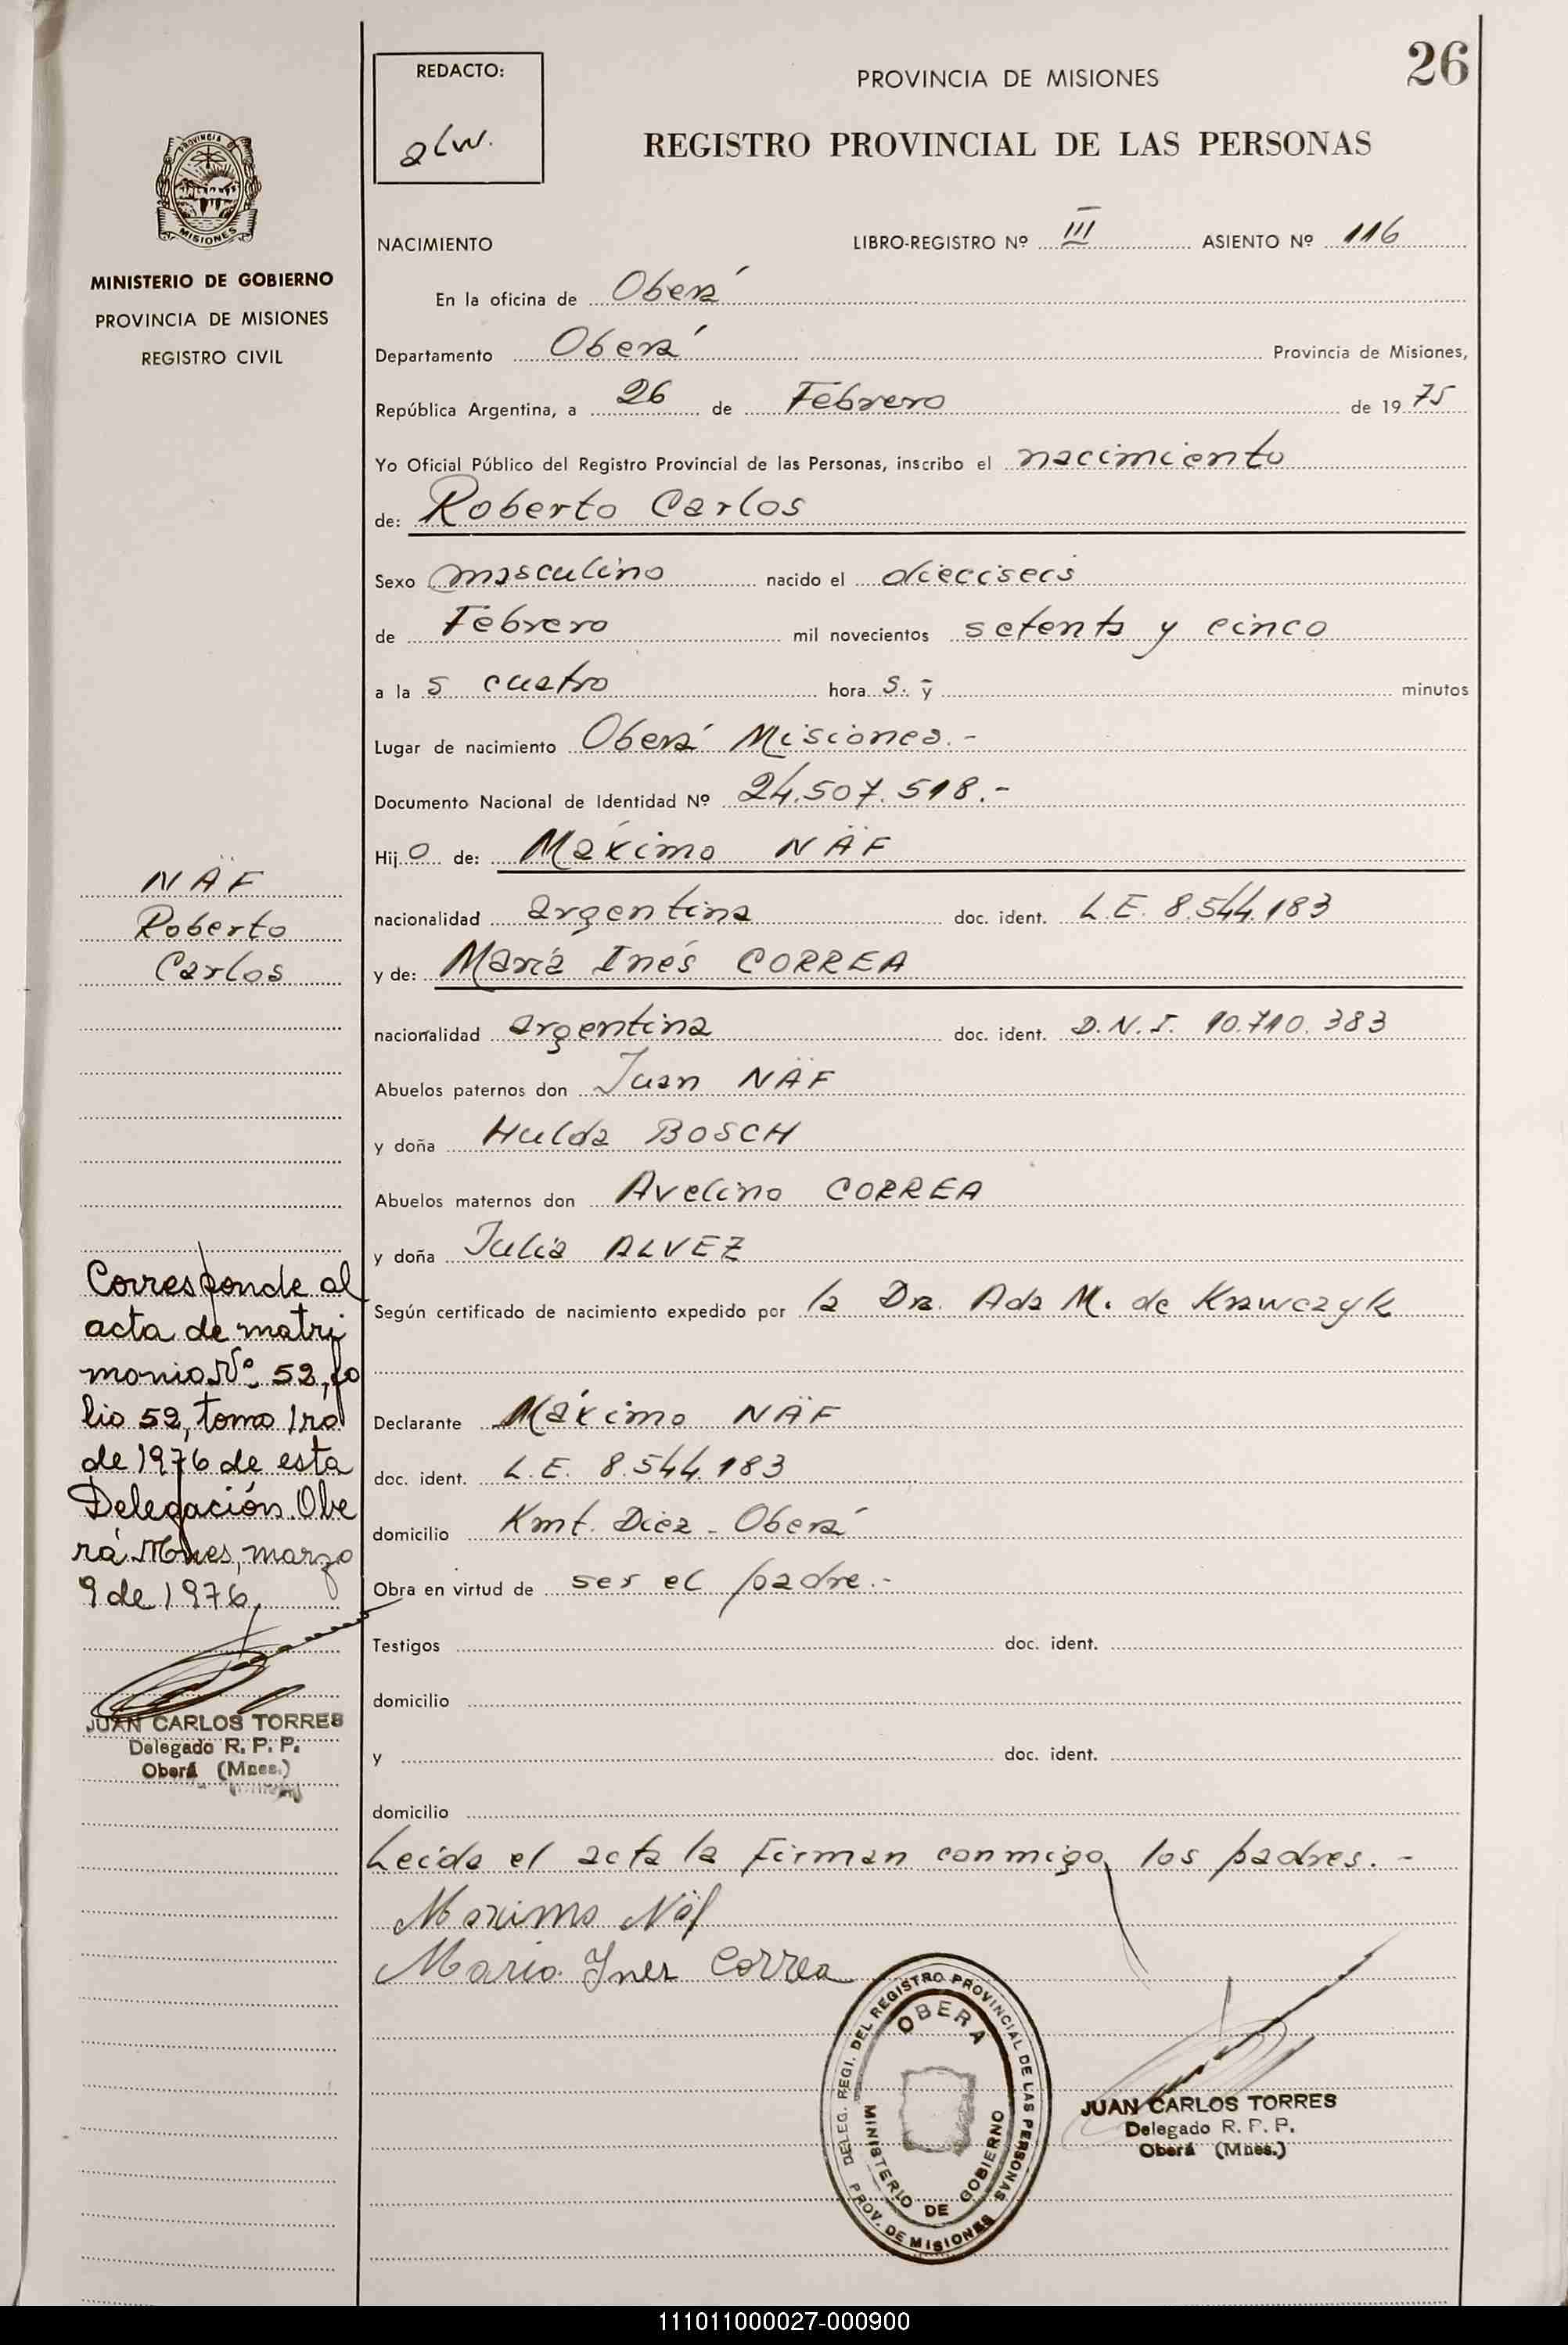 26
REDACTO:
alw.
PROVINCIA DE MISIONES
REGISTRO PROVINCIAL DE LAS PERSONAS
PROVINCIA DE
MISIONES
MINISTERIO DE GOBIERNO
PROVINCIA DE MISIONES
REGISTRO CIVIL
NACIMIENTO LIBRO-REGISTRO Nº III ASIENTO Nº 116
En la oficina de Oberá
Departamento Oberá Provincia de Misiones,
República Argentina, a 26 de Febrero de 1975
Yo Oficial Público del Registro Provincial de las Personas, inscribo el nacimiento
de: Roberto Carlos
Sexo masculino nacido el dieciseis
de Febrero mil novecientos setenta y cinco
a la s cuatro hora s. y minutos
Lugar de nacimiento Oberá Misiones.-
Documento Nacional de Identidad Nº 24.507.518.-
Hijo de: Máximo NÄF
nacionalidad argentina doc. ident. L.E. 8.544.183
y de: María Inés CORREA
nacionalidad argentina doc. ident. D.N.I. 10.710.383
Abuelos paternos don Juan NÄF
y doña Hulda BOSCH
Abuelos maternos don Avelino CORREA
y doña Julia ALVEZ
Según certificado de nacimiento expedido por la Dra. Ada M. de Krawczyk
Declarante Máximo NÄF
doc. ident. L.E. 8.544.183
domicilio Kmt. Diez - Oberá
Obra en virtud de ser el padre.-
Testigos doc. ident.
domicilio
y doc. ident.
domicilio
Leida el acta la firman conmigo los padres.-
Maximo Näf
Maria Ines Correa
NÄF
Roberto
Carlos
Corresponde al
acta de matri
monio Nº 52, fo
lio 52, tomo 1ro
de 1976 de esta
Delegación. Obe
rá Mnes, marzo
9 de 1976.
JUAN CARLOS TORRES
Delegado R. P. P.
Oberá (Mnes.)
DELEG. REGI. DEL REGISTRO PROVINCIAL DE LAS PERSONAS
OBERA
MINISTERIO DE GOBIERNO
PROV. DE MISIONES
JUAN CARLOS TORRES
Delegado R. P. P.
Oberá (Mnes.)
111011000027-000900